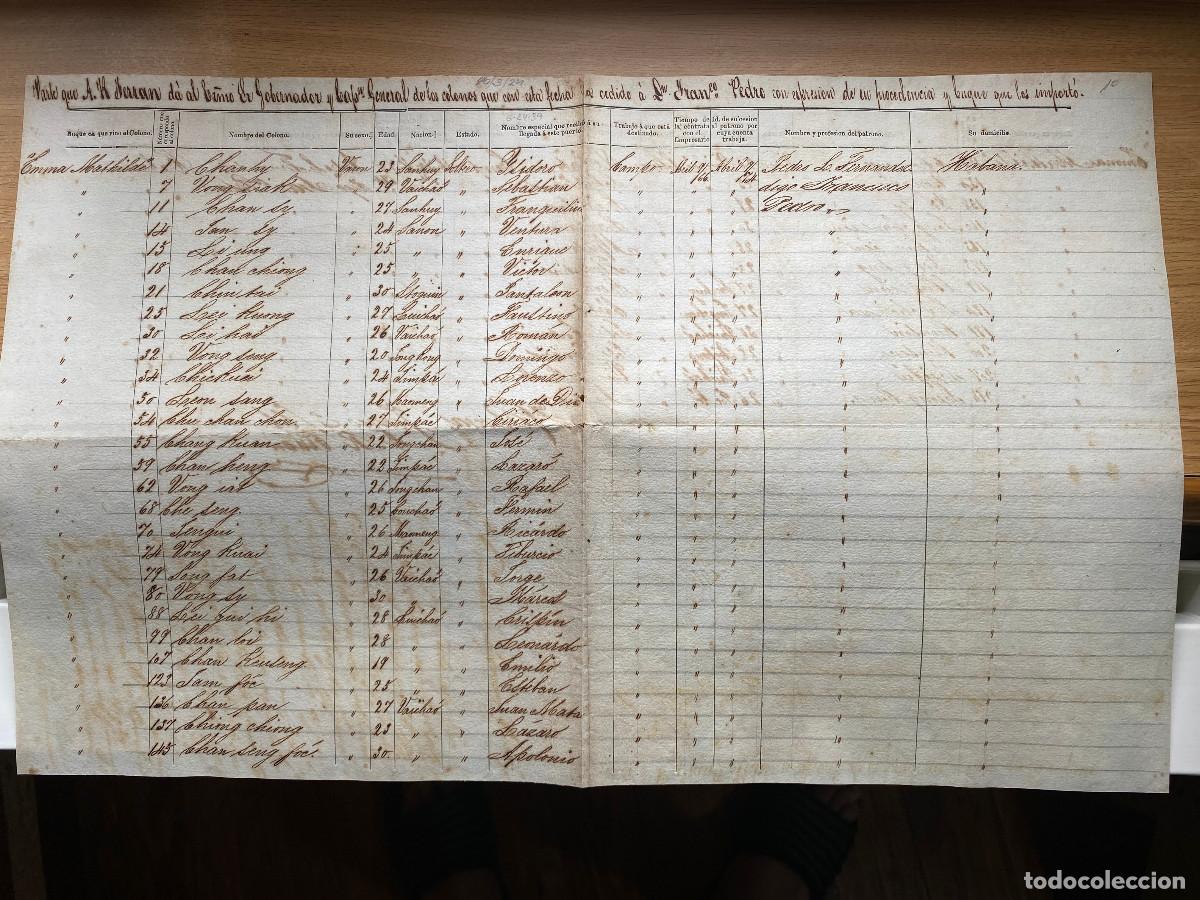 Parte que A. R. Ferran dá al Exmo Sr Gobernador y Capn General de los colonos que con esta fecha ha cedido á Dn Franco Pedro con espresion de su procedencia y buque que los importó.
10
Buque en que vino el Colono. Nombre del Colono. Su sexo. Edad Nacion Estado. Nombre especial que recibió á su llegada á este puerto. Trabajo á que está destinado. Tiempo de la contrata con el Empresario Id. de sucesion al patrono por cuya cuenta trabaja. Nombre y profesion del patrono. Su domicilio.
Emma Mathilde 1 Chanhy Varon 23 Sanhuy Soltero Ysidoro Campo Abril 9/66 Abril 9/74 Pedro L. Fernandez Habana.
" 7 Vong " 29 Vaichao " Sebastian " " " digo Francisco "
" 11 Chan sy. " 27 Sanhuy " Tranquilino " " " Pedro "
" 14 San sy " 24 Sanon " Ventura " " " " "
" 15 Li ung " 25 " " Enrique " " " " "
" 18 Chan chiong " 25 " " Victor " " " " "
" 21 Chin tai " 30 " Pantaleon " " " " "
" 25 Lei kuong " 27 " Faustino " " " " "
" 30 Lei hai " 26 Vaichao " Roman " " " " "
" 32 Vong seng " 20 " Domingo " " " " "
" 34 " 24 Simpác " Lorenzo " " " " "
" 50 Leon sang " 26 Maomeng " Juan de Dios " " " " "
" 54 Chu chan chon " 27 Simpác " Ciriaco " " " " "
" 55 Chang kuan " 22 Songchan " José " " " " "
" 59 Chan heng " 22 Simpác " Lazaro " " " " "
" 62 Vong iat " 26 Songchan " Rafael " " " " "
" 68 Che seng. " 25 " Fermin " " " " "
" 70 " 26 Maomeng " Ricárdo " " " " "
" 74 Vong kuai " 24 Simpác " Tiburcio " " " " "
" 79 Song fat " 26 Vaichao " Jorge " " " " "
" 80 Vong sy " 30 " " Márcos " " " " "
" 88 Lei qui hi " 28 " Crispin " " " " "
" 99 Chan loi " 28 " " Leonárdo " " " " "
" 107 Chan keuseng " 19 " " Emilio " " " " "
" 123 Sam fóc " 25 " " Estéban " " " " "
" 136 Chan pan " 27 Vaichao " Juan Mata " " " " "
" 137 Chiong chiong " 23 " " Lázaro " " " " "
" 145 Chan seng fóc. " 30 " " Apolonio " " " " "
todocoleccion